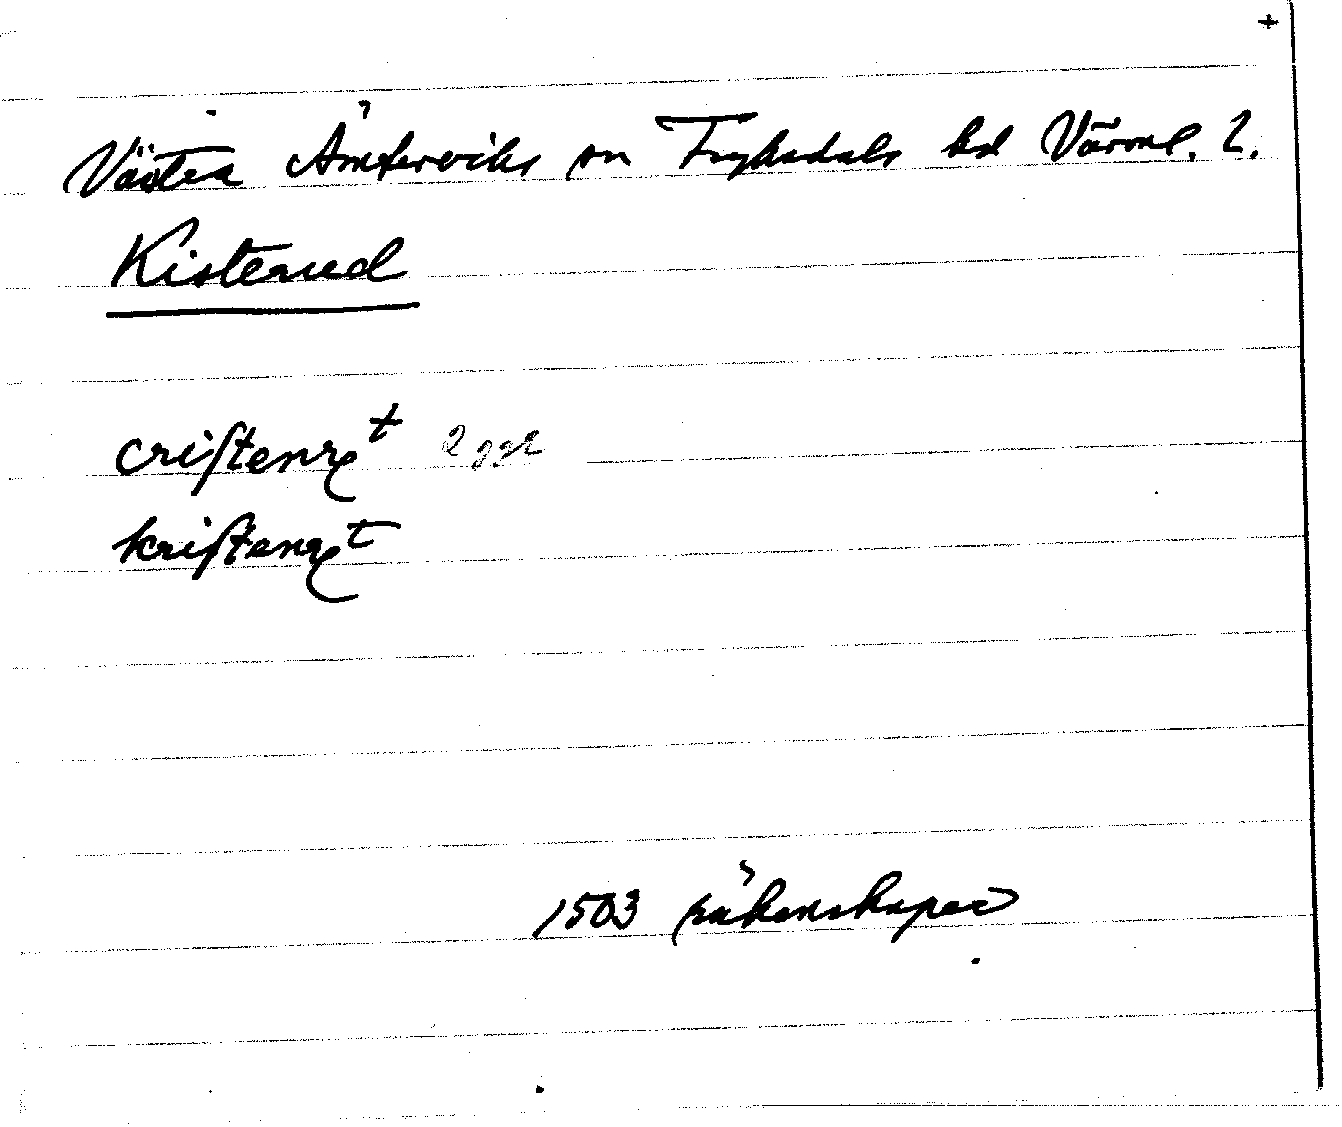 +
Västra Ämterviks sn Fryksdals hd Värml. l.
Kisterud
criſtenrt 2 ggr
kriſtenrt
1503 räkenskaper